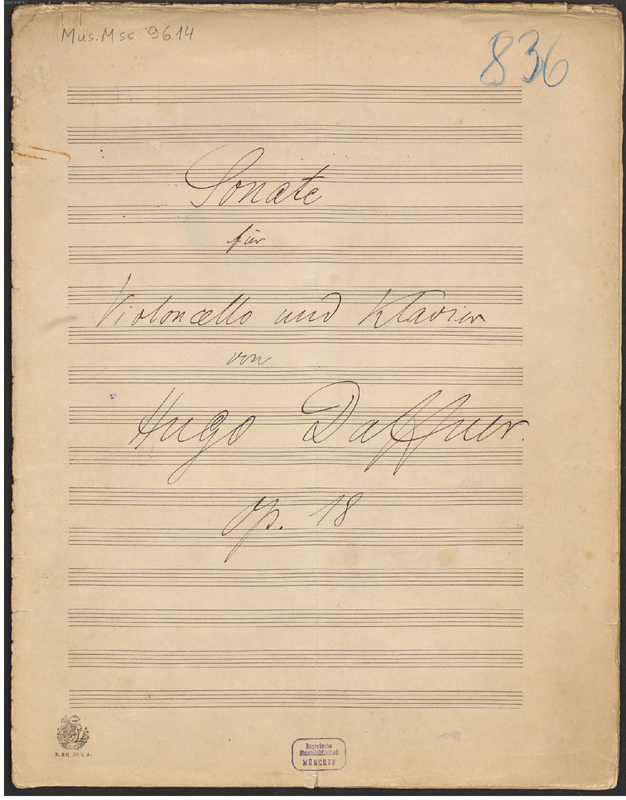 Mus. Mss. 9614
836
Sonate
für
Violoncello und Klavier
von
Hugo Daffner.
op. 18
Bayerische
Staatsbibliothek
MÜNCHEN